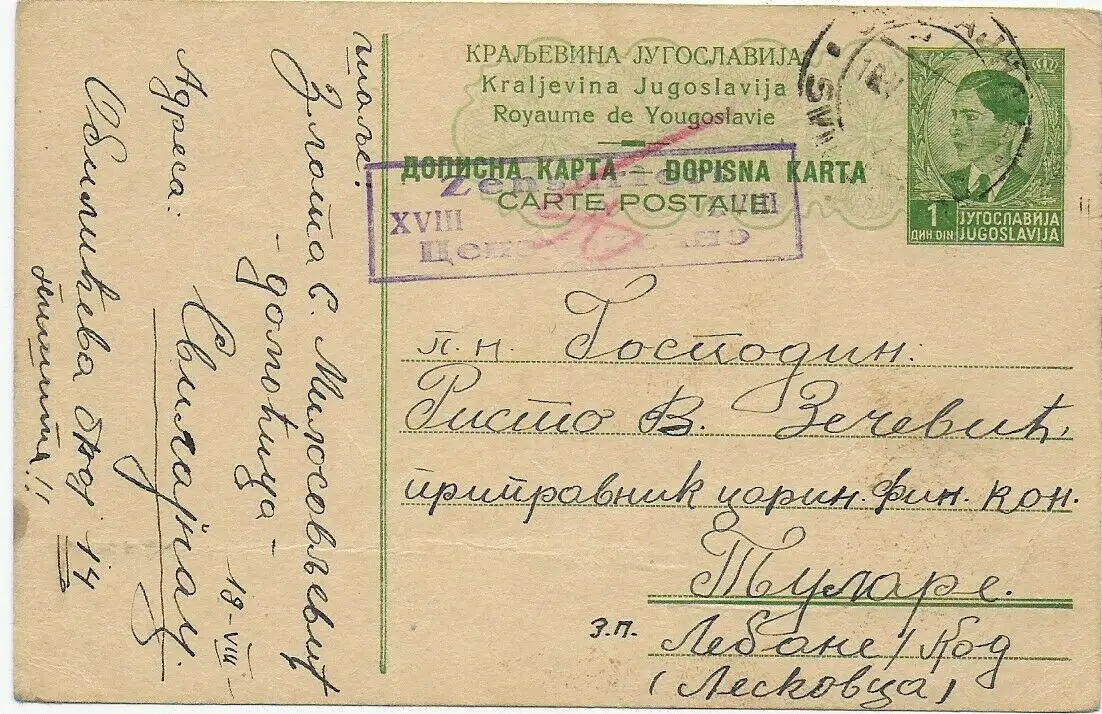 КРАЉЕВИНА ЈУГОСЛАВИЈА
Kraljevina Jugoslavija
Royaume de Yougoslavie
ДОПИСНА КАРТА — DOPISNA KARTA
CARTE POSTALE
XVIII
XVIII
1
ДИН DIN
ЈУГОСЛАВИЈА
JUGOSLAVIJA
п.н. Господин:
Ристо В. Зечевић,
приправник царин. фин. кон.
Туларе.
З.П. Лебане / код
(Лесковца)
шаље:
Злота С. Милосављевић
- домаћица -
19-VIII-
Свилајнац.
Адреса:
Обилићева број 14